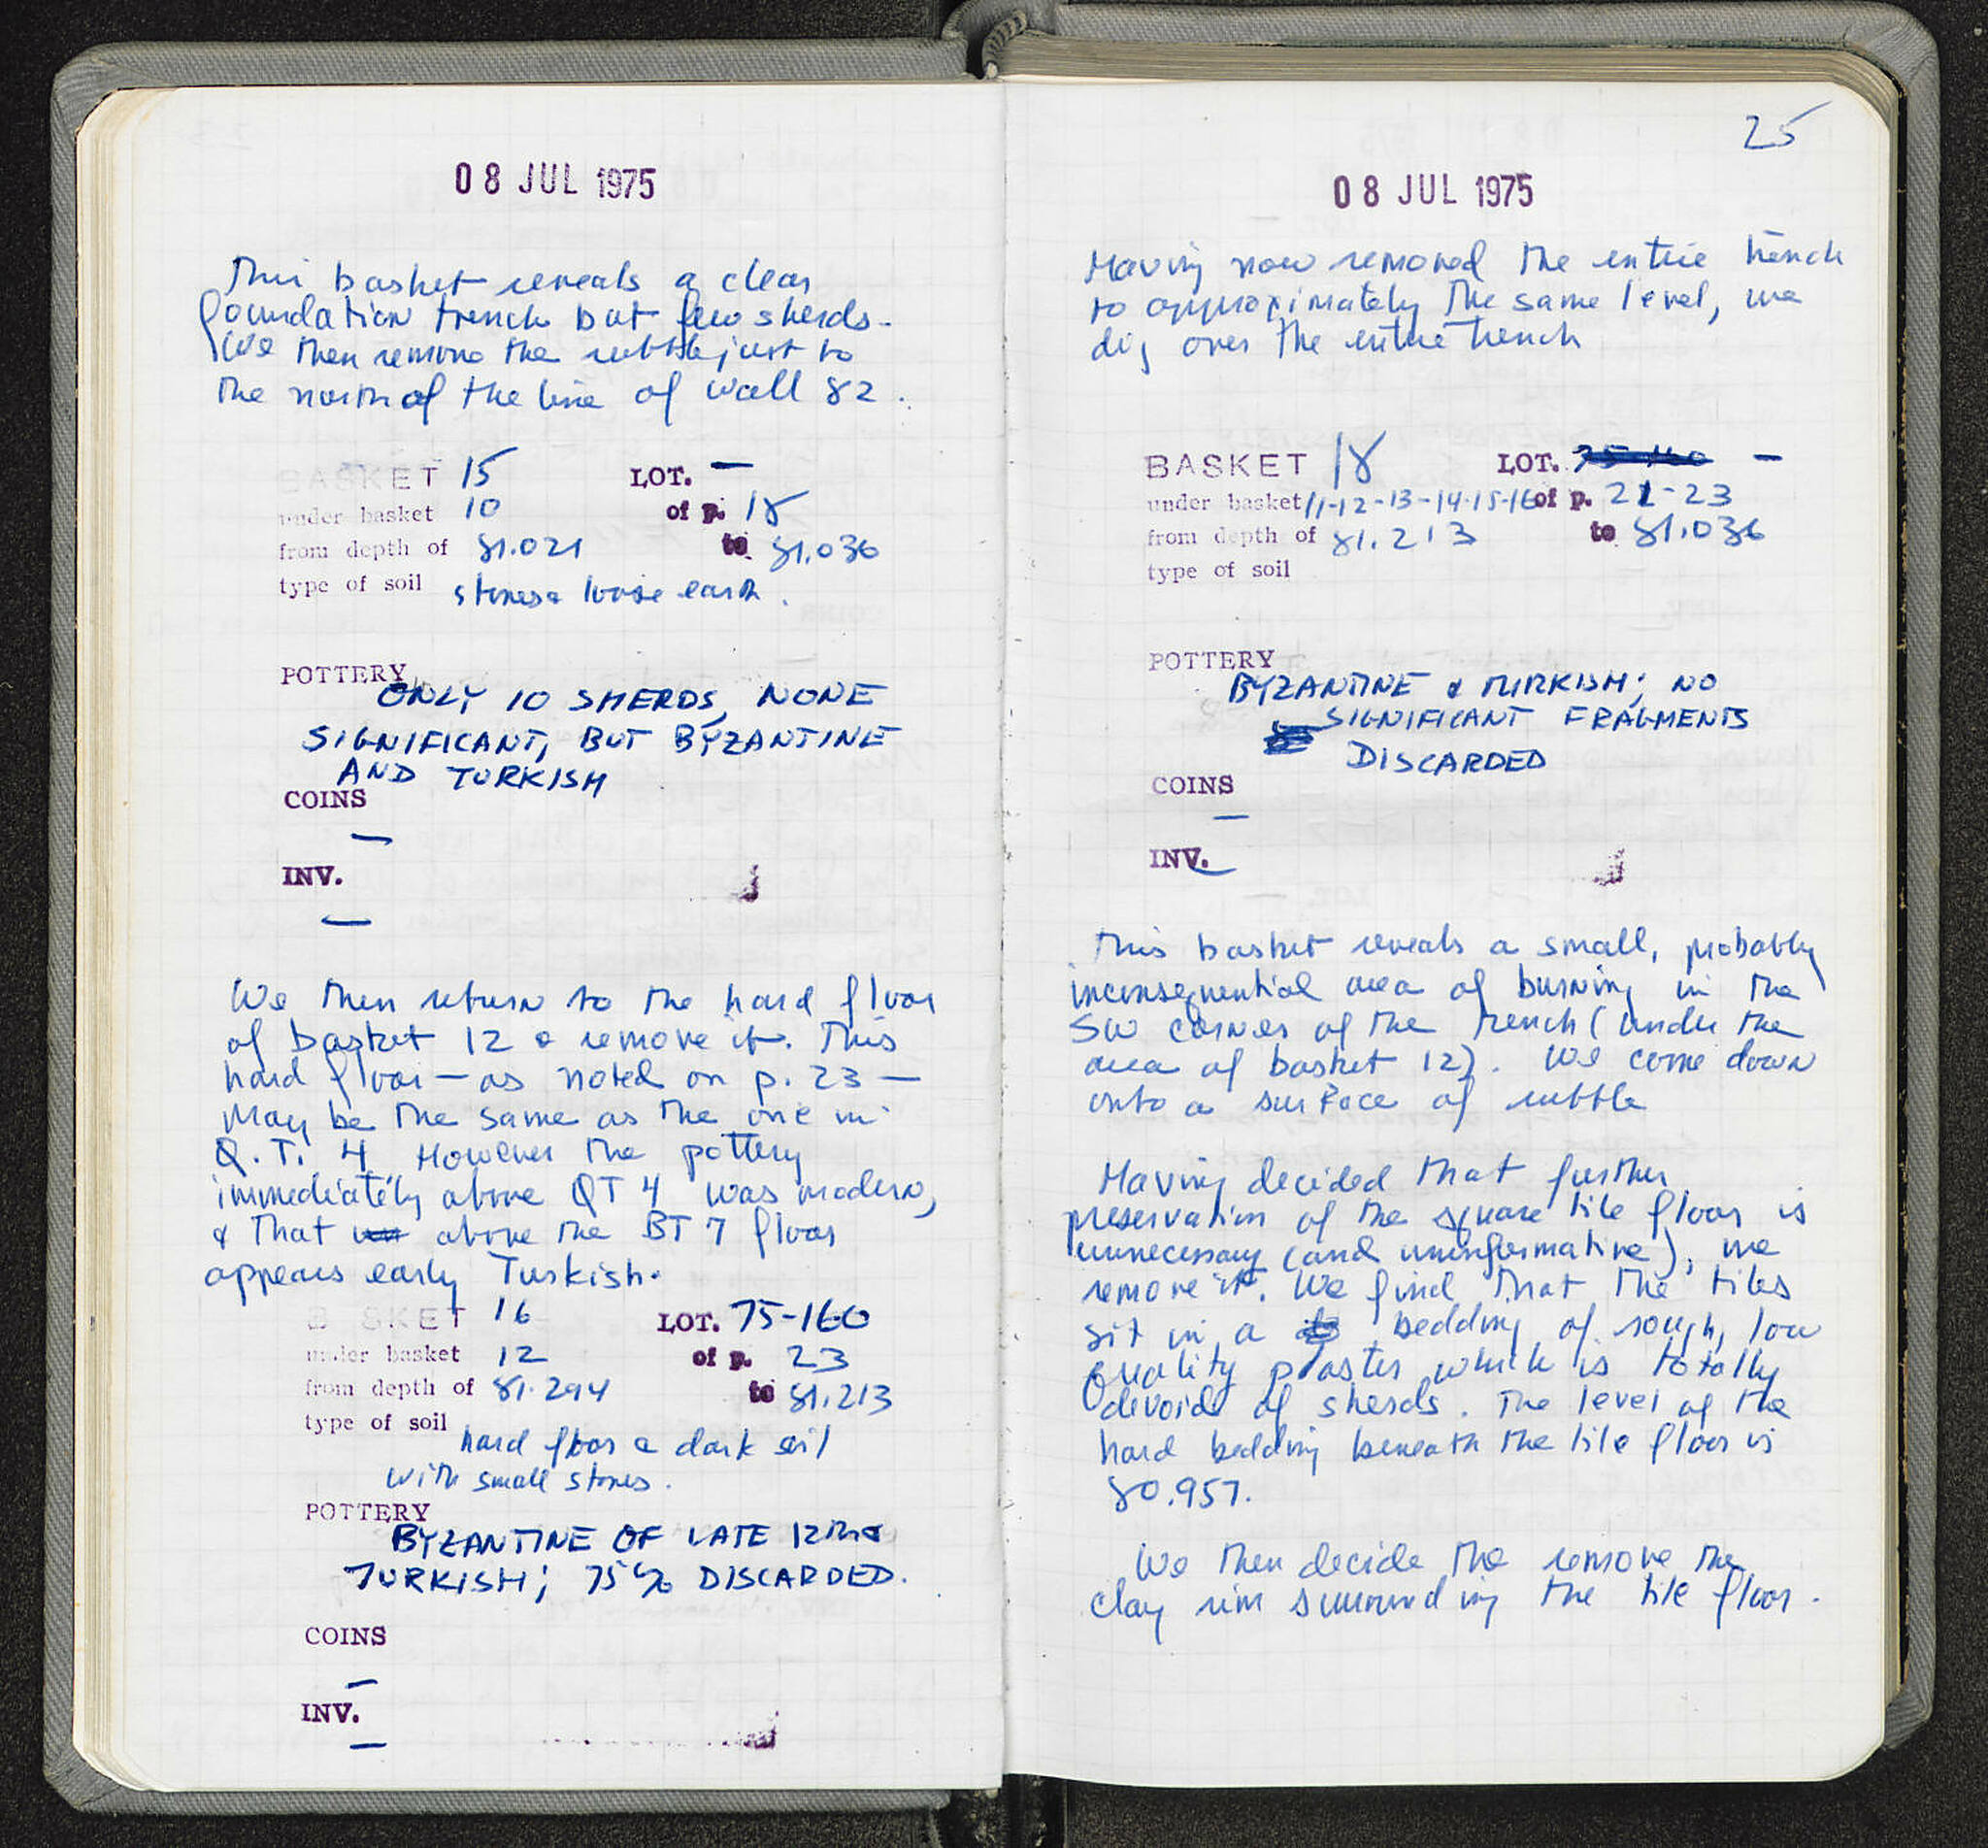 08 JUL 1975
This basket reveals a clear
foundation trench but few sherds.
We then remove the rubble just to
the north of the line of wall 82.
BASKET 15 LOT. —
under basket 10 of p. 18
from depth of 81.021 to 81.036
type of soil stones & loose earth.
POTTERY
ONLY 10 SHERDS, NONE
SIGNIFICANT, BUT BYZANTINE
AND TURKISH
COINS
—
INV.
—
We then return to the hard floor
of basket 12 & remove it. This
hard floor — as noted on p. 23 —
may be the same as the one in
Q.T. 4 However the pottery
immediately above QT 4 was modern,
& that above the BT 7 floor
appears early Turkish.
B SKET 16 LOT. 75-160
under basket 12 of p. 23
from depth of 81.294 to 81.213
type of soil
hard floor & dark soil
with small stones.
POTTERY
BYZANTINE OF LATE 12TH &
TURKISH; 75% DISCARDED.
COINS
—
INV.
—
25
08 JUL 1975
Having now removed the entire trench
to approximately the same level, we
dig over the entire trench
BASKET 18 LOT. 75-160 —
under basket 11-12-13-14-15-16 of p. 21-23
from depth of 81.213 to 81.036
type of soil
POTTERY
BYZANTINE & TURKISH; NO
SIGNIFICANT FRAGMENTS
DISCARDED
COINS
—
INV.
—
This basket reveals a small, probably
inconsequential area of burning in the
SW corner of the trench (under the
area of basket 12). We come down
onto a surface of rubble
Having decided that further
preservation of the square tile floor is
unnecessary (and uninformative), we
remove it. We find that the tiles
sit in a bedding of rough, low
quality plaster which is totally
devoid of sherds. The level of the
hard bedding beneath the tile floor is
80.957.
We then decide the remove the
clay rim surrounding the tile floor.